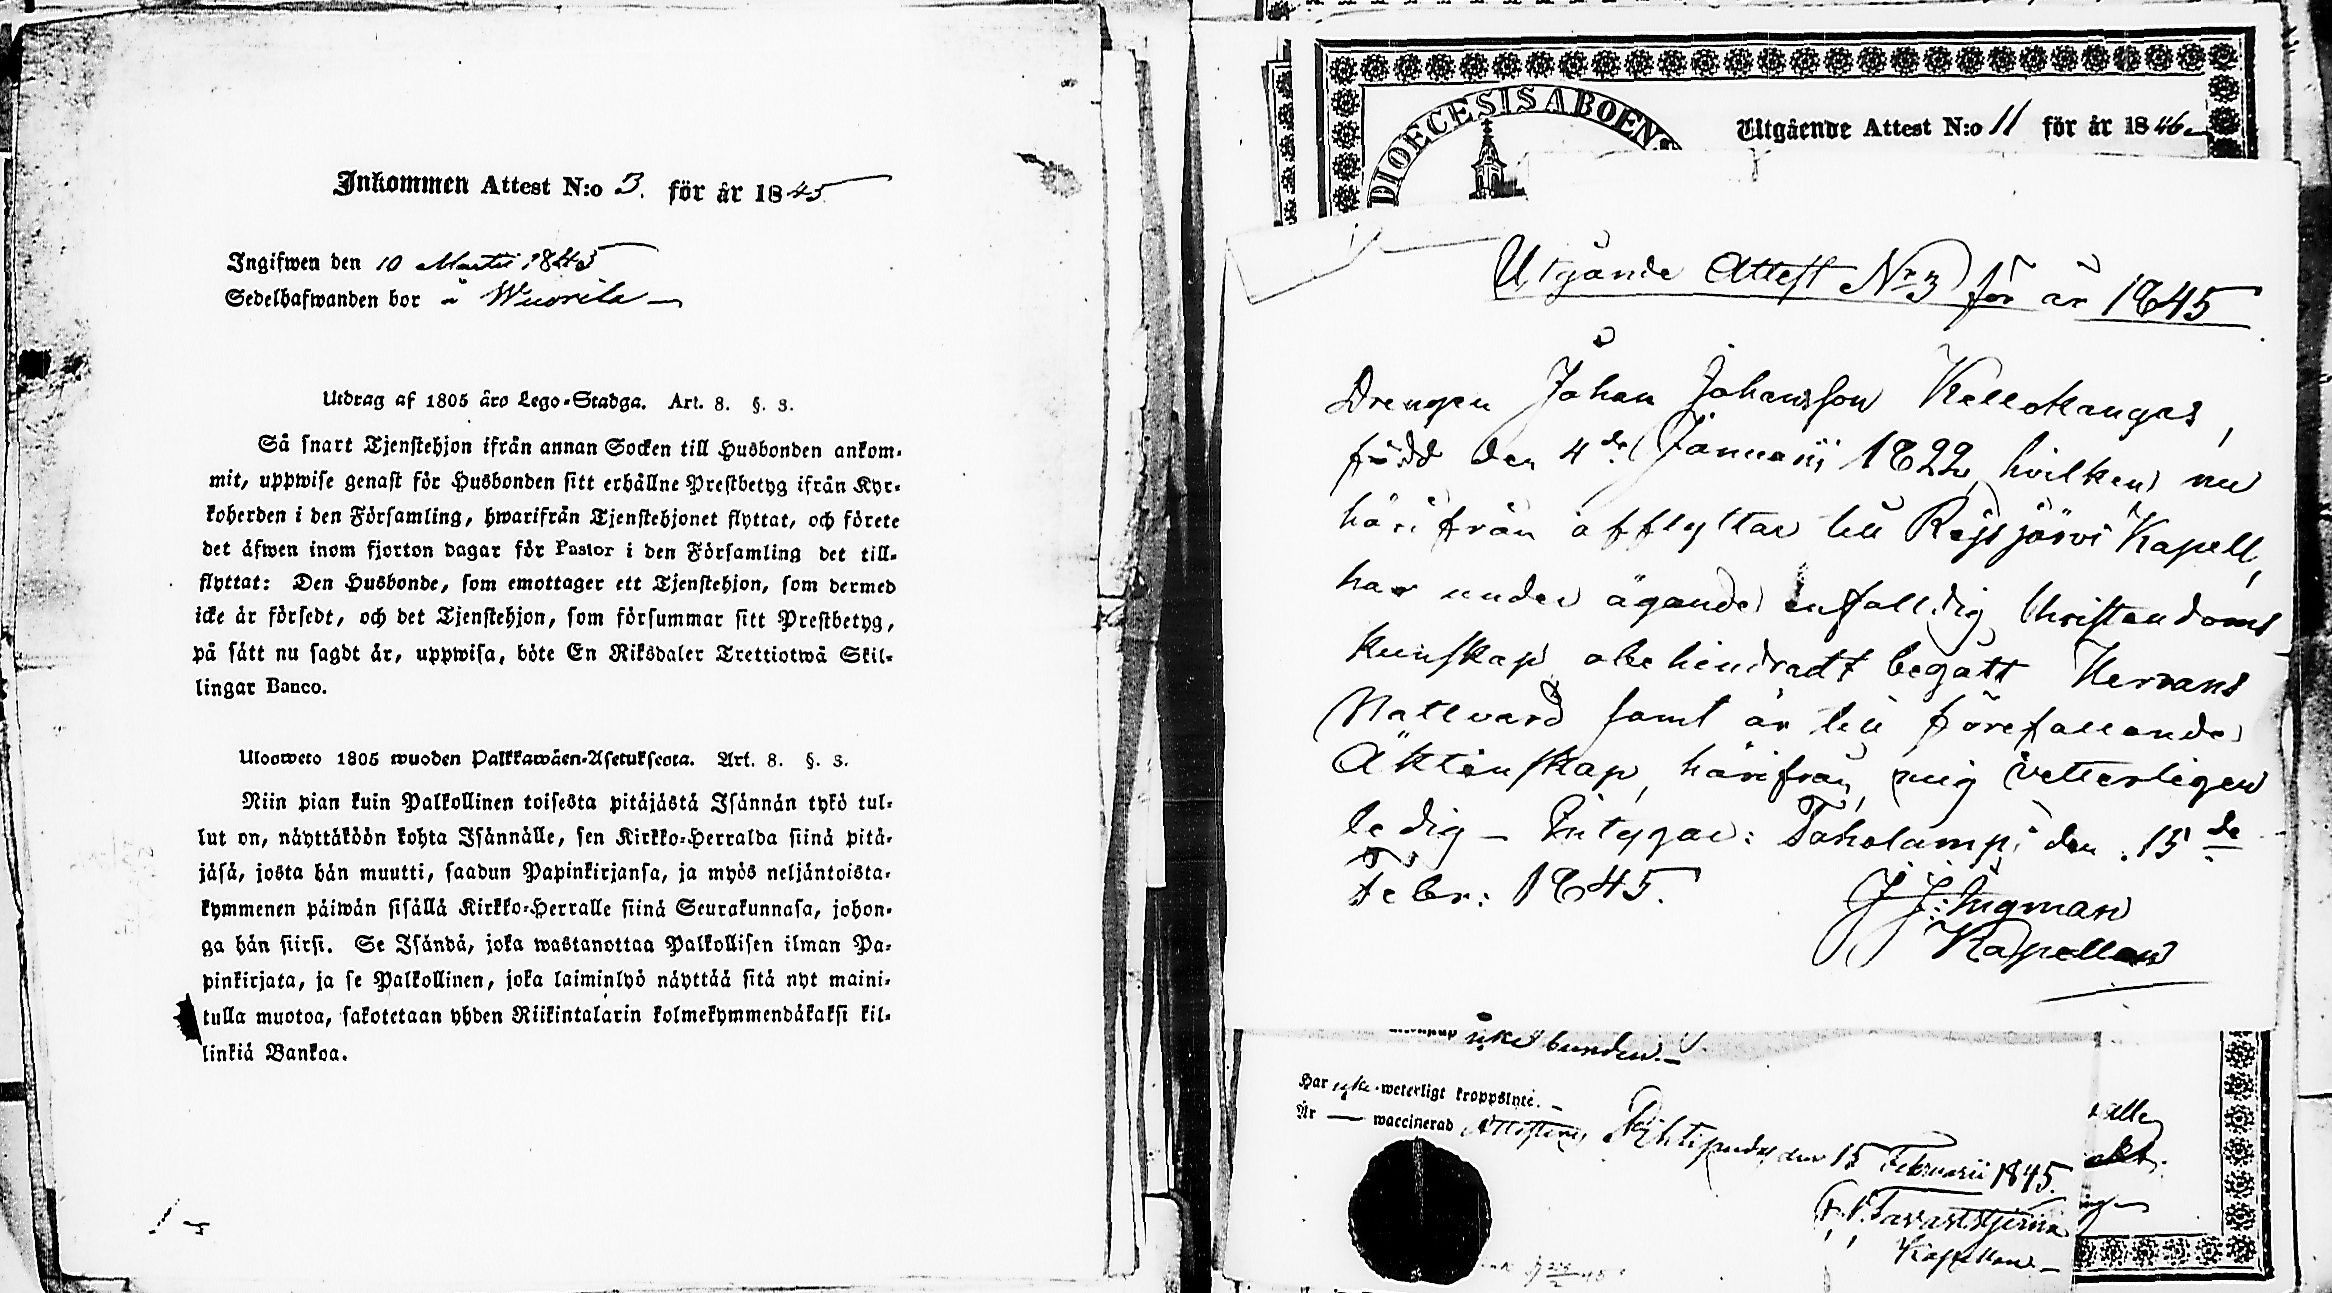 Inkommen Attest N:o 3. för år 1845
Ingifwen den 10 Martii 1845
Sedelhafwanden bor å Wuorila
Utdrag af 1805 års Lego-Stadga. Art. 8. §. 3.
Så snart Tjenstehjon ifrån annan Socken till Husbonden ankom-
mit, uppwise genast för Husbonden sitt erhållne Prestbetyg ifrån Kyr-
koherden i den Församling, hwarifrån Tjenstehjonet flyttat, och förete
det äfwen inom fjorton dagar för Pastor i den Församling det till-
flyttat: Den Husbonde, som emottager ett Tjenstehjon, som dermed
icke är försedt, och det Tjenstehjon, som försummar sitt Prestbetyg,
på sätt nu sagdt är, uppwisa, böte En Riksdaler Trettiotwå Skil-
lingar Banco.
Ulosweto 1805 wuoden Palkkawäen-Asetuksesta. Art. 8. §. 3.
Niin pian kuin Palkollinen toisesta pitäjästä Isännän tykö tul-
lut on, näyttäköön kohta Isännälle, sen Kirkko-Herralda siinä pitä-
jäsä, josta hän muutti, saadun Papinkirjansa, ja myös neljäntoista-
kymmenen päiwän sisällä Kirkko-Herralle siinä Seurakunnasa, johon-
ga hän siirsi. Se Isändä, joka wastanottaa Palkollisen ilman Pa-
pinkirjata, ja se Palkollinen, joka laiminlyö näyttää sitä nyt maini-
tulla muotoa, sakotetaan yhden Riikintalarin kolmekymmendäkaksi kil-
linkiä Bankoa.
DIOECESIS ABOENS
Utgående Attest N:o 11 för år 1846
Utgående Attest Nr 3 för år 1845
Drengen Johan Johansson Kellokangas,
född den 4de Januarii 1822, hvilken nu
härifrån afflyttar till Reisjärvi Kapell,
har under ägande enfalldig Christendoms
kunskap obehindradt begått Herrans
Nattvard samt är till förefallande
Äktenskap, härifrån, mig vetterligen
ledig – Intygar: Toholampi den 15de
Febr: 1845.
J J: Ingman
Kapellan
icke bunden.
Har icke weterligt kroppslyte.
Är — waccinerad Attesterar Pyhtipudas den 15 Februarii 1845.
Tavaststjerna
Kapellan